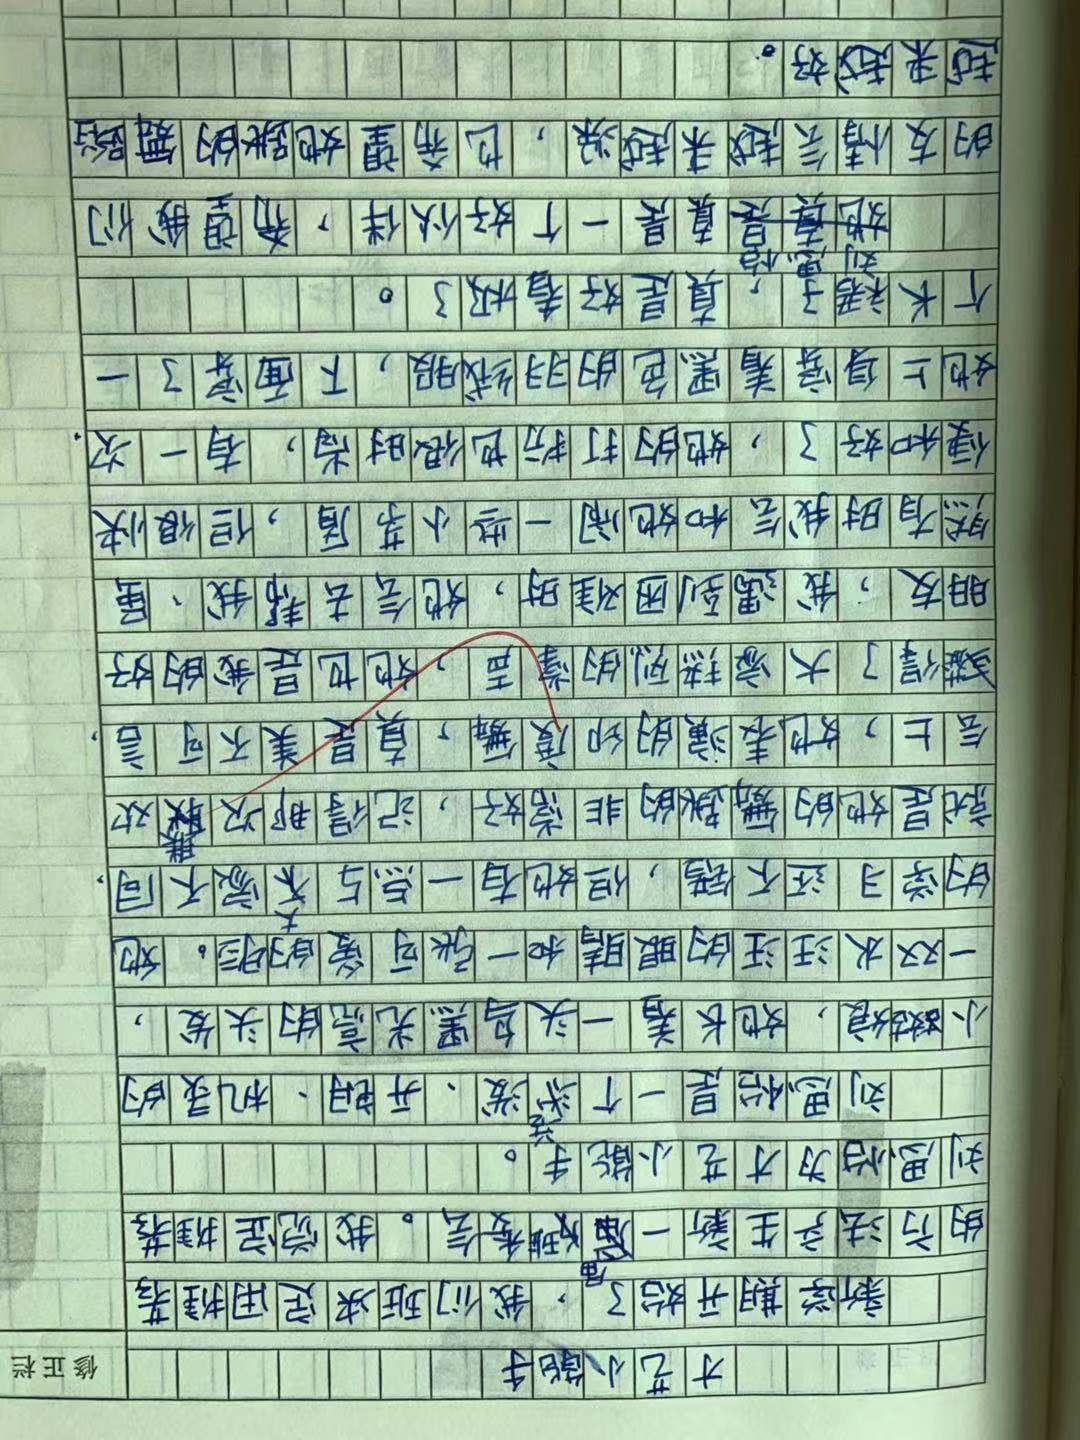 修正栏
才艺小能手
新学期开始了，我们班决定用推荐
的方法产生新一届班委会。我觉定推荐
刘思怡为才艺小能手。
刘思怡是一个活泼、开朗、机灵的
小姑娘，她长着一头乌黑光亮的头发，
一双水汪汪的眼睛和一张可爱的脸。她
的学习还不错，但她有一点与大家不同，
就是她的舞跳的非常好，记得那次联欢
会上，她表演的印度舞，真是美不可言，
赢得了大家热烈的掌声，她也是我的好
朋友，我遇到困难时，她会去帮我、虽
然有时我会和她闹一些小矛盾，但很快
便和好了，她的打扮也很时尚，有一次
她上身穿着黑色的羽绒服，下面穿了一
个长裙子，真是好看极了。
刘思怡真是一个好伙伴，希望我们
的友情会越来越深，也希望她跳的舞蹈
越来越好。